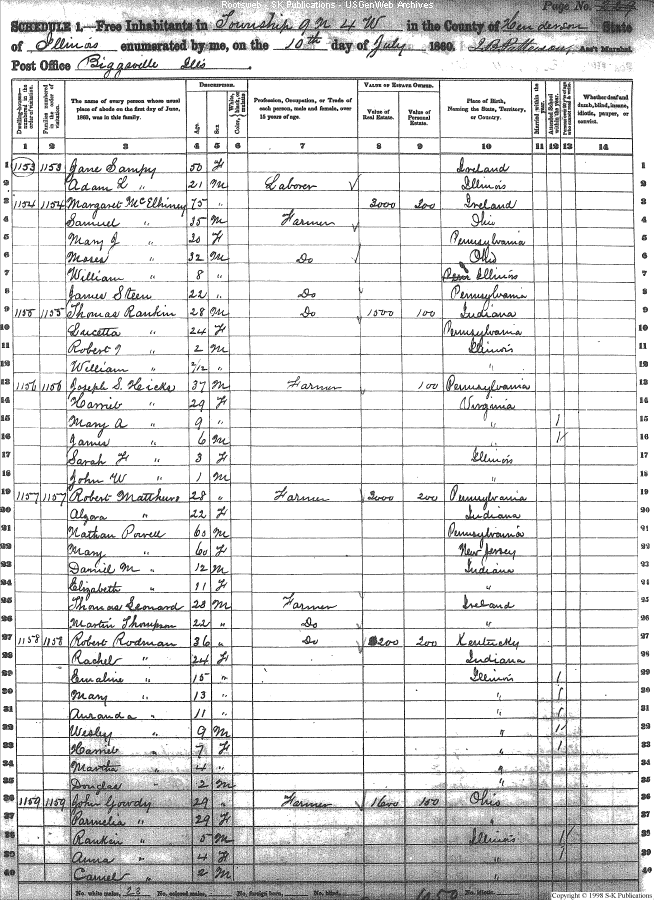 Rootsweb - S-K Publications - USGenWeb Archives
Page No.
SCHEDULE 1.—Free Inhabitants in Township 9 N 4 W in the County of Henderson State
of Illinois enumerated by me, on the 10th day of July 1860. Ass't Marshal.
Post Office Biggsville Ills
DESCRIPTION. VALUE OF ESTATE OWNED.
Dwelling-houses—numbered in the order of visitation.
Families numbered in the order of visitation.
The name of every person whose usual place of abode on the first day of June, 1860, was in this family.
Age. Sex.
Profession, Occupation, or Trade of each person, male and female, over 15 years of age.
Value of Real Estate.
Value of Personal Estate.
Place of Birth, Naming the State, Territory, or Country.
Married within the year.
Attended School within the year.
Whether deaf and dumb, blind, insane, idiotic, pauper, or convict.
1 2 3 4 5 6 7 8 9 10 11 12 13 14
1 1153 1153 Jane Sampy 50 F Ireland 1
2 Adam L " 21 M Laborer Illinois 2
3 1154 1154 Margaret McElhiney 75 " 3000 200 Ireland 3
4 Samuel " 35 M Farmer Ohio 4
5 Mary J " 30 F Pennsylvania 5
6 Moses " 32 M Do Ohio 6
7 William " 8 " Illinois 7
8 James Steen 22 " Do Pennsylvania 8
9 1155 1155 Thomas Rankin 28 M Do 1500 100 Indiana 9
10 " 24 F Pennsylvania 10
11 Robert " 2 M Illinois 11
12 William " 2/12 " " 12
13 1156 1156 Joseph S. Hicks 37 M Farmer 100 Pennsylvania 13
14 Harriet " 29 F Virginia 14
15 Mary A " 9 " " 1 15
16 James " 6 M " 1 16
17 Sarah F " 3 F Illinois 17
18 John W " 1 M " 18
19 1157 1157 Robert Matthews 28 " Farmer 2000 200 Pennsylvania 19
20 " 22 F Indiana 20
21 Nathan Powell 60 M Pennsylvania 21
22 Mary " 60 F New Jersey 22
23 Daniel M " 12 M Indiana 23
24 Elizabeth " 11 F " 24
25 Thomas Leonard 23 M Farmer Ireland 25
26 Martin Thompson 22 " Do " 26
27 1158 1158 Robert Rodman 36 " Do 200 Kentucky 27
28 Rachel " 24 F Indiana 28
29 Emaline " 15 " Illinois 1 29
30 Mary " 13 " " 1 30
31 Auranda " 11 " " 1 31
32 Wesley " 9 M " 1 32
33 Harriet " 7 F " 1 33
34 Martha " 4 " " 34
35 Douglas " 2 M " 35
36 1159 1159 John Gowdy 29 " Farmer 1600 150 Ohio 36
37 Parmelia " 29 F " 37
38 Rankin " 5 M Illinois 1 38
39 Anna " 4 F " 1 39
40 " 2 M " 40
No. white males, 23 No. colored males, No. foreign born, No. blind, No. idiotic,
Copyright © 1998 S-K Publications